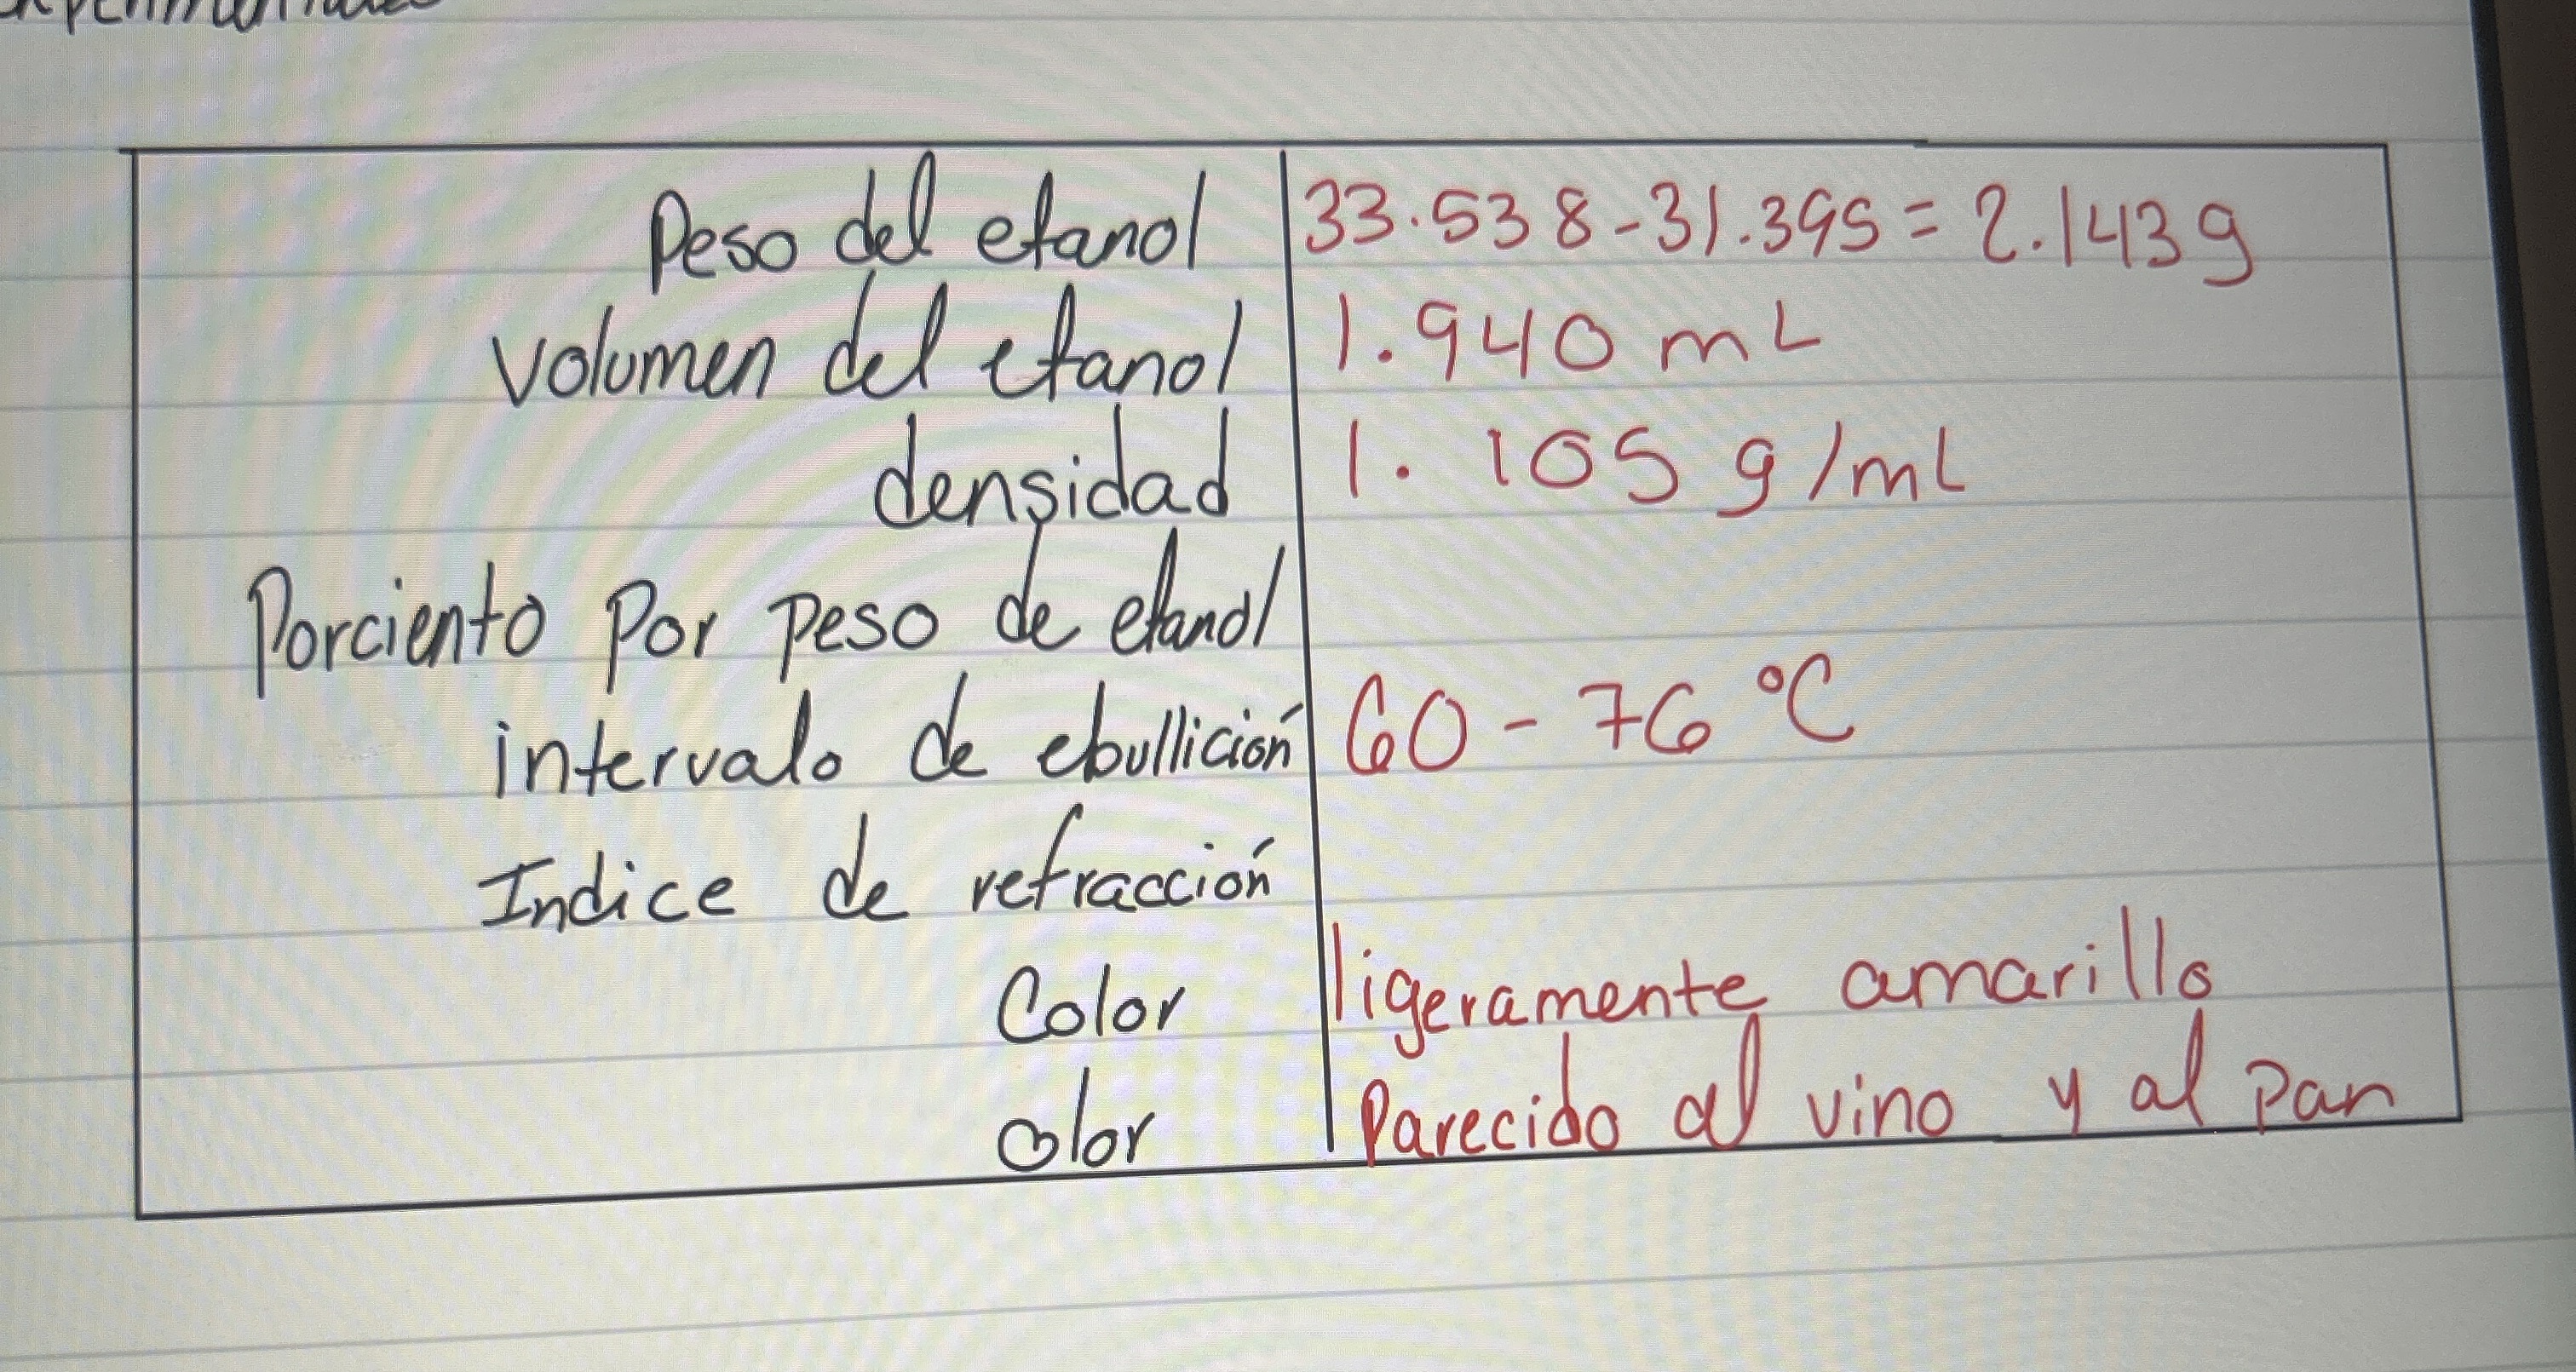 Peso del etanol 33.538-31.395 = 2.143 g
Volumen del etanol 1.940 mL
densidad 1.105 g/mL
Porciento Por peso de etanol
intervalo de ebullición 60 - 76 °C
Indice de refracción
Color ligeramente amarillo
olor Parecido al vino y al pan